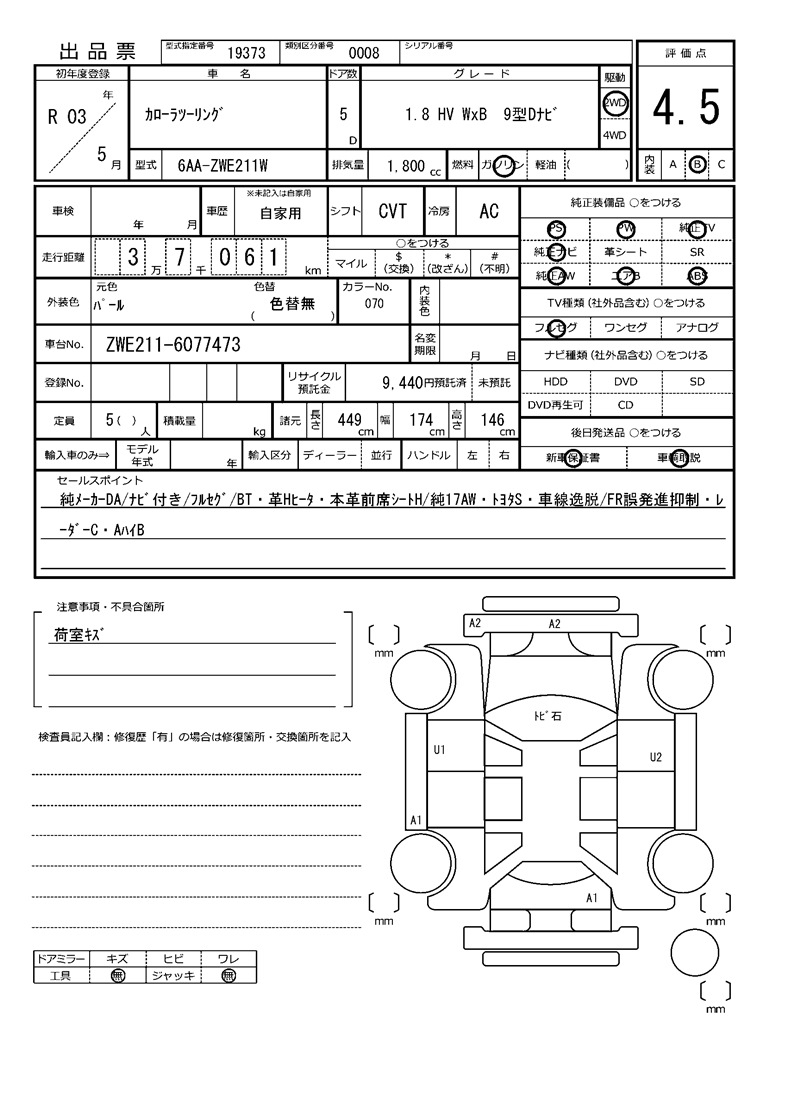 出品票 型式指定番号 19373 類別区分番号 0008 シリアル番号
評価点
4.5
初年度登録 車名 ドア数 グレード 駆動
R 03 年 5 月
カローラツーリング 5 D 1.8 HV WxB 9型Dナビ 2WD
4WD
型式 6AA-ZWE211W 排気量 1,800 cc 燃料 ガソリン 軽油 ( ) 内装 A B C
車検 年 月 車歴 ※未記入は自家用 自家用 シフト CVT 冷房 AC
走行距離 3 万 7 千 0 6 1 km ○をつける
マイル $(交換) *(改ざん) #(不明)
外装色 元色 パール 色替 色替無 ( ) カラーNo. 070 内装色
車台No. ZWE211-6077473 名変期限 月 日
登録No. リサイクル預託金 9,440円預託済 未預託
定員 5( )人 積載量 kg 諸元 長さ 449cm 幅 174cm 高さ 146cm
輸入車のみ⇒ モデル年式 年 輸入区分 ディーラー 並行 ハンドル 左 右
純正装備品 ○をつける
PS PW 純正TV
純正ナビ 革シート SR
純正AW エアB ABS
TV種類(社外品含む)○をつける
フルセグ ワンセグ アナログ
ナビ種類(社外品含む)○をつける
HDD DVD SD
DVD再生可 CD
後日発送品 ○をつける
新車保証書 車輌取説
セールスポイント
純メーカーDA/ナビ付き/フルセグ/BT・革Hヒータ・本革前席シートH/純17AW・トヨタS・車線逸脱/FR誤発進抑制・レ
ーダーC・AハイB
注意事項・不具合箇所
荷室キズ
検査員記入欄:修復歴「有」の場合は修復箇所・交換箇所を記入
ドアミラー キズ ヒビ ワレ
工具 無 ジャッキ 無
A2 A2
mm mm
トビ石
U1 U2
A1
A1
mm mm
mm